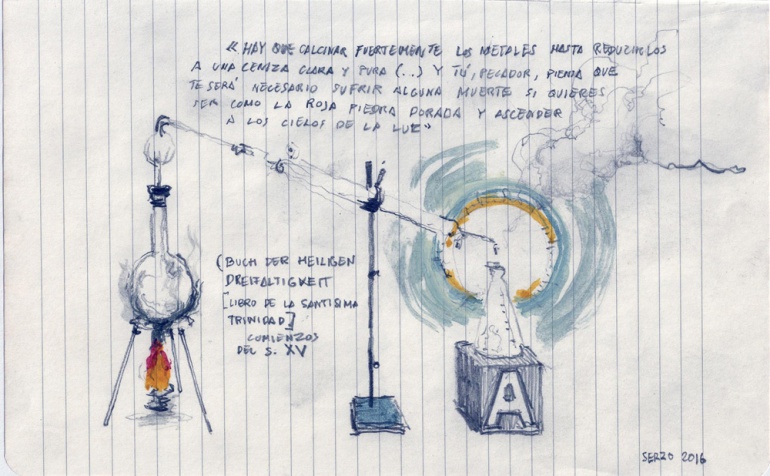 « HAY QUE CALCINAR FUERTEMENTE LOS METALES HASTA REDUCIRLOS
A UNA CENIZA CLARA Y PURA (..) Y TÚ, PECADOR, PIENSA QUE
TE SERÁ NECESARIO SUFRIR ALGUNA MUERTE SI QUIERES
SER COMO LA ROJA PIEDRA DORADA Y ASCENDER
A LOS CIELOS DE LA LUZ»
(BUCH DER HEILIGEN
DREIFALTIGKEIT
[LIBRO DE LA SANTISIMA
TRINIDAD]
COMIENZOS
DEL S. XV
A
SERZO 2016